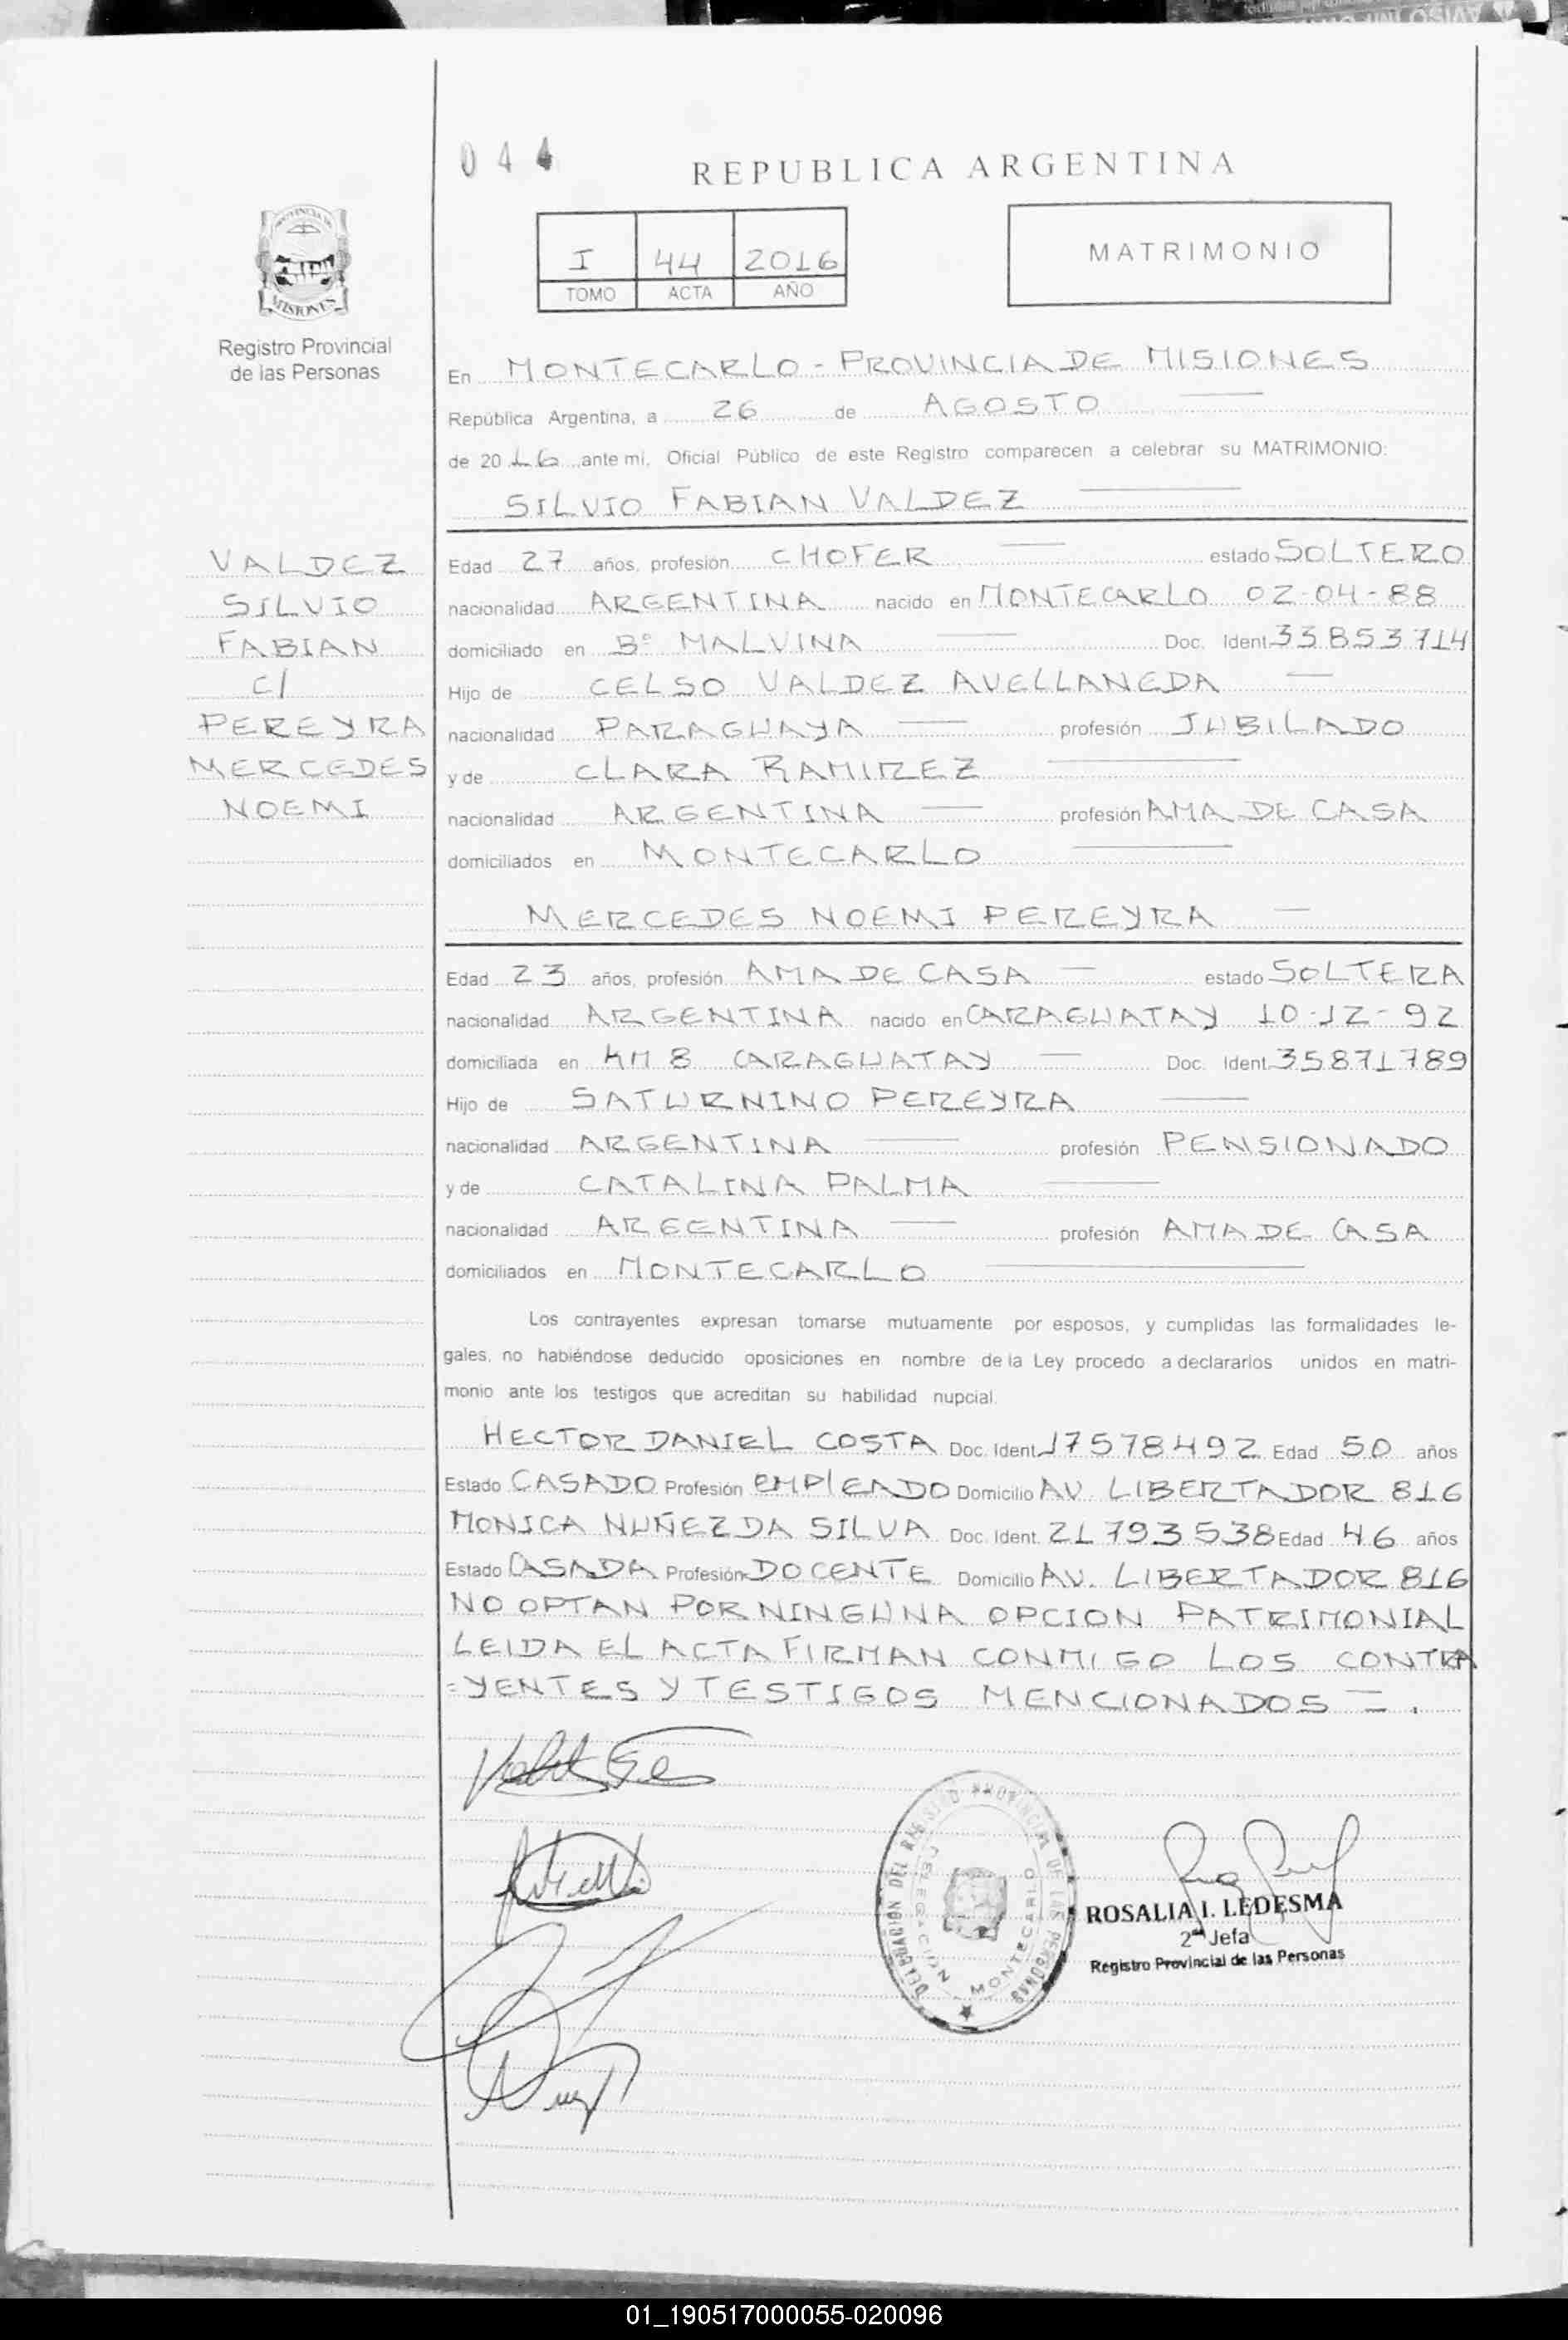 044
REPUBLICA ARGENTINA
I 44 2016
TOMO ACTA AÑO
MATRIMONIO
PROVINCIA DE
MISIONES
Registro Provincial
de las Personas
En MONTECARLO - PROVINCIA DE MISIONES
República Argentina, a 26 de AGOSTO
de 20 16 ante mi, Oficial Público de este Registro comparecen a celebrar su MATRIMONIO:
SILVIO FABIAN VALDEZ
VALDEZ
SILVIO
FABIAN
C/
PEREYRA
MERCEDES
NOEMI
Edad 27 años, profesión CHOFER estado SOLTERO
nacionalidad ARGENTINA nacido en MONTECARLO 02-04-88
domiciliado en Bº MALVINA Doc. Ident. 33853714
Hijo de CELSO VALDEZ AVELLANEDA
nacionalidad PARAGUAYA profesión JUBILADO
y de CLARA RAMIREZ
nacionalidad ARGENTINA profesión AMA DE CASA
domiciliados en MONTECARLO
MERCEDES NOEMI PEREYRA
Edad 23 años, profesión AMA DE CASA estado SOLTERA
nacionalidad ARGENTINA nacido en CARAGUATAY 10-12-92
domiciliada en KM 8 CARAGUATAY Doc. Ident. 35871789
Hijo de SATURNINO PEREYRA
nacionalidad ARGENTINA profesión PENSIONADO
y de CATALINA PALMA
nacionalidad ARGENTINA profesión AMA DE CASA
domiciliados en MONTECARLO
Los contrayentes expresan tomarse mutuamente por esposos, y cumplidas las formalidades le-
gales, no habiéndose deducido oposiciones en nombre de la Ley procedo a declararlos unidos en matri-
monio ante los testigos que acreditan su habilidad nupcial.
HECTOR DANIEL COSTA Doc. Ident. 17578492 Edad 50 años
Estado CASADO Profesión EMPLEADO Domicilio AV. LIBERTADOR 816
MONICA NUÑEZ DA SILVA Doc. Ident. 21793538 Edad 46 años
Estado CASADA Profesión DOCENTE Domicilio AV. LIBERTADOR 816
NO OPTAN POR NINGUNA OPCION PATRIMONIAL
LEIDA EL ACTA FIRMAN CONMIGO LOS CONTRA
=YENTES Y TESTIGOS MENCIONADOS = .
DELEGACION DEL REGISTRO PROVINCIAL DE LAS PERSONAS
DELEGACION MONTECARLO
ROSALIA I. LEDESMA
2da Jefa
Registro Provincial de las Personas
01_190517000055-020096